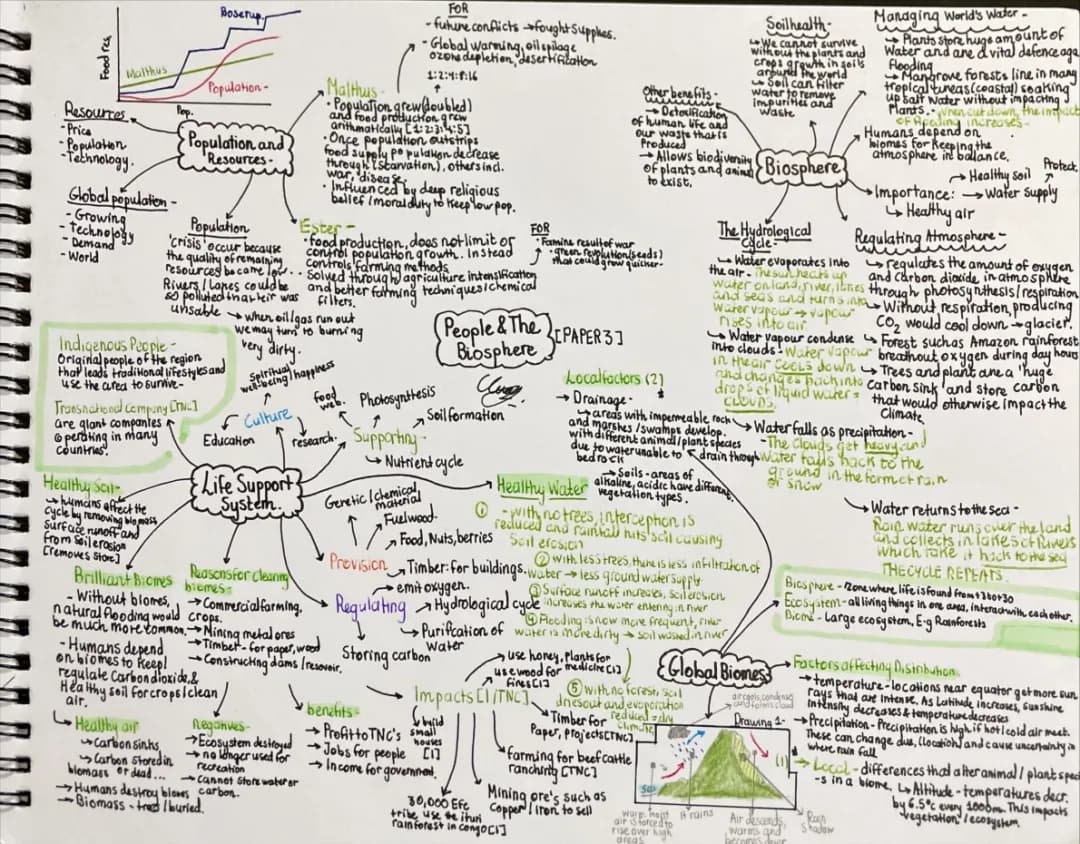 Boserup.
Food res.
Malthus
Population -
Pop.
Resources
- Price
- Population
- Technology.
Population and
Resources -
Global population -
- Growing
- Technology
- Demand
- World
Population
'crisis' occur because
the quality of remaining
resources became low..
Rivers / Lakes could be
so polluted that it was
unusable
→ when oil/gas run out
we may turn to burning
very dirty.
FOR
- future conflicts → fought supplies.
- Global warming, oil spilage
ozone depletion, desertification
1:2:4:8:16
Malthus -
• Population grew (doubled)
and food production grew
arithmatically [1:2:3:4:5]
• Once population outstrips
food supply population decrease
through (starvation), others incl.
war, disease.
• Influenced by deep religious
belief / moral duty to keep low pop.
Ester -
• food production, does not limit or
control population growth. Instead
controls farming methods
Solved through agriculture intensification
and better farming techniques/chemical
filters.
FOR
• Famine result of war
• green revolution (seeds)
that could grow quicker.
People & The
Biosphere
[PAPER 3]
Soil health -
↳ We cannot survive
without the plants and
crops growth in soils
around the world
↳ Soil can filter
water to remove
impurities and
waste
Other benefits -
→ Detoxification
of human life and
our waste that is
produced
→ Allows biodiversity
of plants and animal
to exist.
Biosphere
Managing World's Water -
↳ Plants store huge amount of
Water and are a vital defence aga.
flooding
↳ Mangrove forests line in many
tropical areas (coastal) soaking
up salt water without impacting
plants. - when cut down, the impact
of flooding increases -
Humans depend on
biomes for keeping the
atmosphere in ballance.
Importance:
→ Healthy soil
→ Water supply
↳ Healthy air
Protect.
The Hydrological
Cycle -
↳ Water evaporates into
the air - The sun heats up
water on land, river, lakes
and seas and turns into
water vapour → vapour
rises into air
↳ Water vapour condense
into clouds - Water vapour
in the air cools down
and changes back into
drops of liquid water =
CLOUDS.
↳ Water falls as precipitation -
- The clouds get heavy and
Water falls back to the
ground in the form of rain
or snow
→ Water returns to the sea -
Rain water runs over the land
and collects in lakes or rivers
which take it back to the sea
THE CYCLE REPEATS.
Regulating Atmosphere -
↳ regulates the amount of oxygen
and carbon dioxide in atmosphere
through photosynthesis / respiration
↳ Without respiration, producing
CO₂ would cool down → glacier.
↳ Forest such as Amazon rainforest
breathout oxygen during day hours
↳ Trees and plant are a 'huge
carbon sink' and store carbon
that would otherwise impact the
climate
Indigenous People -
Original people of the region
that leads traditional lifestyles and
use the area to survive -
Transnational company [TNC]
are giant companies
operating in many
countries.
Spiritual
well-being / happiness
Culture
Education
research.
food
web.
Photosynthesis
Soil formation
Supporting -
↳ Nutrient cycle
Life Support
System.
Healthy Soil -
↳ humans affect the
cycle by removing biomass
surface runoff and
from soil erosion
[removes store]
Genetic / chemical
material
Fuelwood.
Food, Nuts, berries
Provision
→ Timber for buildings.
Regulating
→ emit oxygen.
→ Hydrological cycle
→ Purification of
Water
Storing carbon
Local factors (2)
→ Drainage -
↳ areas with impermeable rock
and marshes / swamps develop.
with different animal / plant species
due to water unable to drain through
bedrock
→ Soils - areas of
alkaline, acidic have different
vegetation types.
Healthy Water
① - With no trees, interception is
reduced and rainfall hits soil causing
Soil erosion
② With less trees, there is less infiltration of
water → less ground water supply
③ Surface runoff increases, soil erosion
increases the water entering in river
④ Flooding is now more frequent, river
water is more dirty → soil washed in river
⑤ With no forest, soil
dries out and evaporation
reduced = dry
climate
Brilliant Biomes
- Without biomes,
natural flooding would
be much more common
- Humans depend
on biomes to keep/
regulate Carbon dioxide, &
Healthy soil for crops / clean
air.
Healthy air
↳ Carbon sinks
↳ Carbon stored in
biomass or dead...
→ Humans destroy biomes
→ Biomass - tred / buried.
Reasons for clearing
biomes -
→ Commercial farming,
crops.
→ Mining metal ores
→ Timber - for paper, wood
→ Constructing dams / resevoir.
Negatives -
→ Ecosystem destroyed
→ no longer used for
recreation
→ Cannot store water or
carbon.
benefits -
→ Profit to TNC's
→ Jobs for people
→ Income for governmed.
Impacts [I/TNC]
→ use honey, Plants for
medicine [I]
use wood for
fires [I]
build
small
houses
[I]
Timber for
Paper, projects [TNC]
farming for beef cattle
ranching [TNC]
Mining ore's such as
Copper / Iron to sell
30,000 Efe
tribe use the ituri
rainforest in congo [I]
Biosphere - zone where life is found
Ecosystem - all living things in one area, interact with each other.
Biome - Large ecosystem, E.g Rainforests
Global Biomes
Factors affecting Distribution.
→ temperature - locations near equator get more sun
rays that are intense. As latitude increases, sunshine
intensity decreases & temperature decreases
→ Precipitation - Precipitation is high if hot/cold air meet.
These can change due, (location) and cause uncertainty in
where rain fall
→ Local - differences that alter animal / plant speci
-s in a biome.
↳ Altitude - temperatures decr.
by 6.5°c every 1000m. This impacts
vegetation / ecosystem.
air cools, condense
and forms cloud
Drawing 1 -
(1)
Sea
warm, moist
air is forced to
rise over high
areas
It rains
Air descends,
warms and
becomes dryer
Rain
Shadow